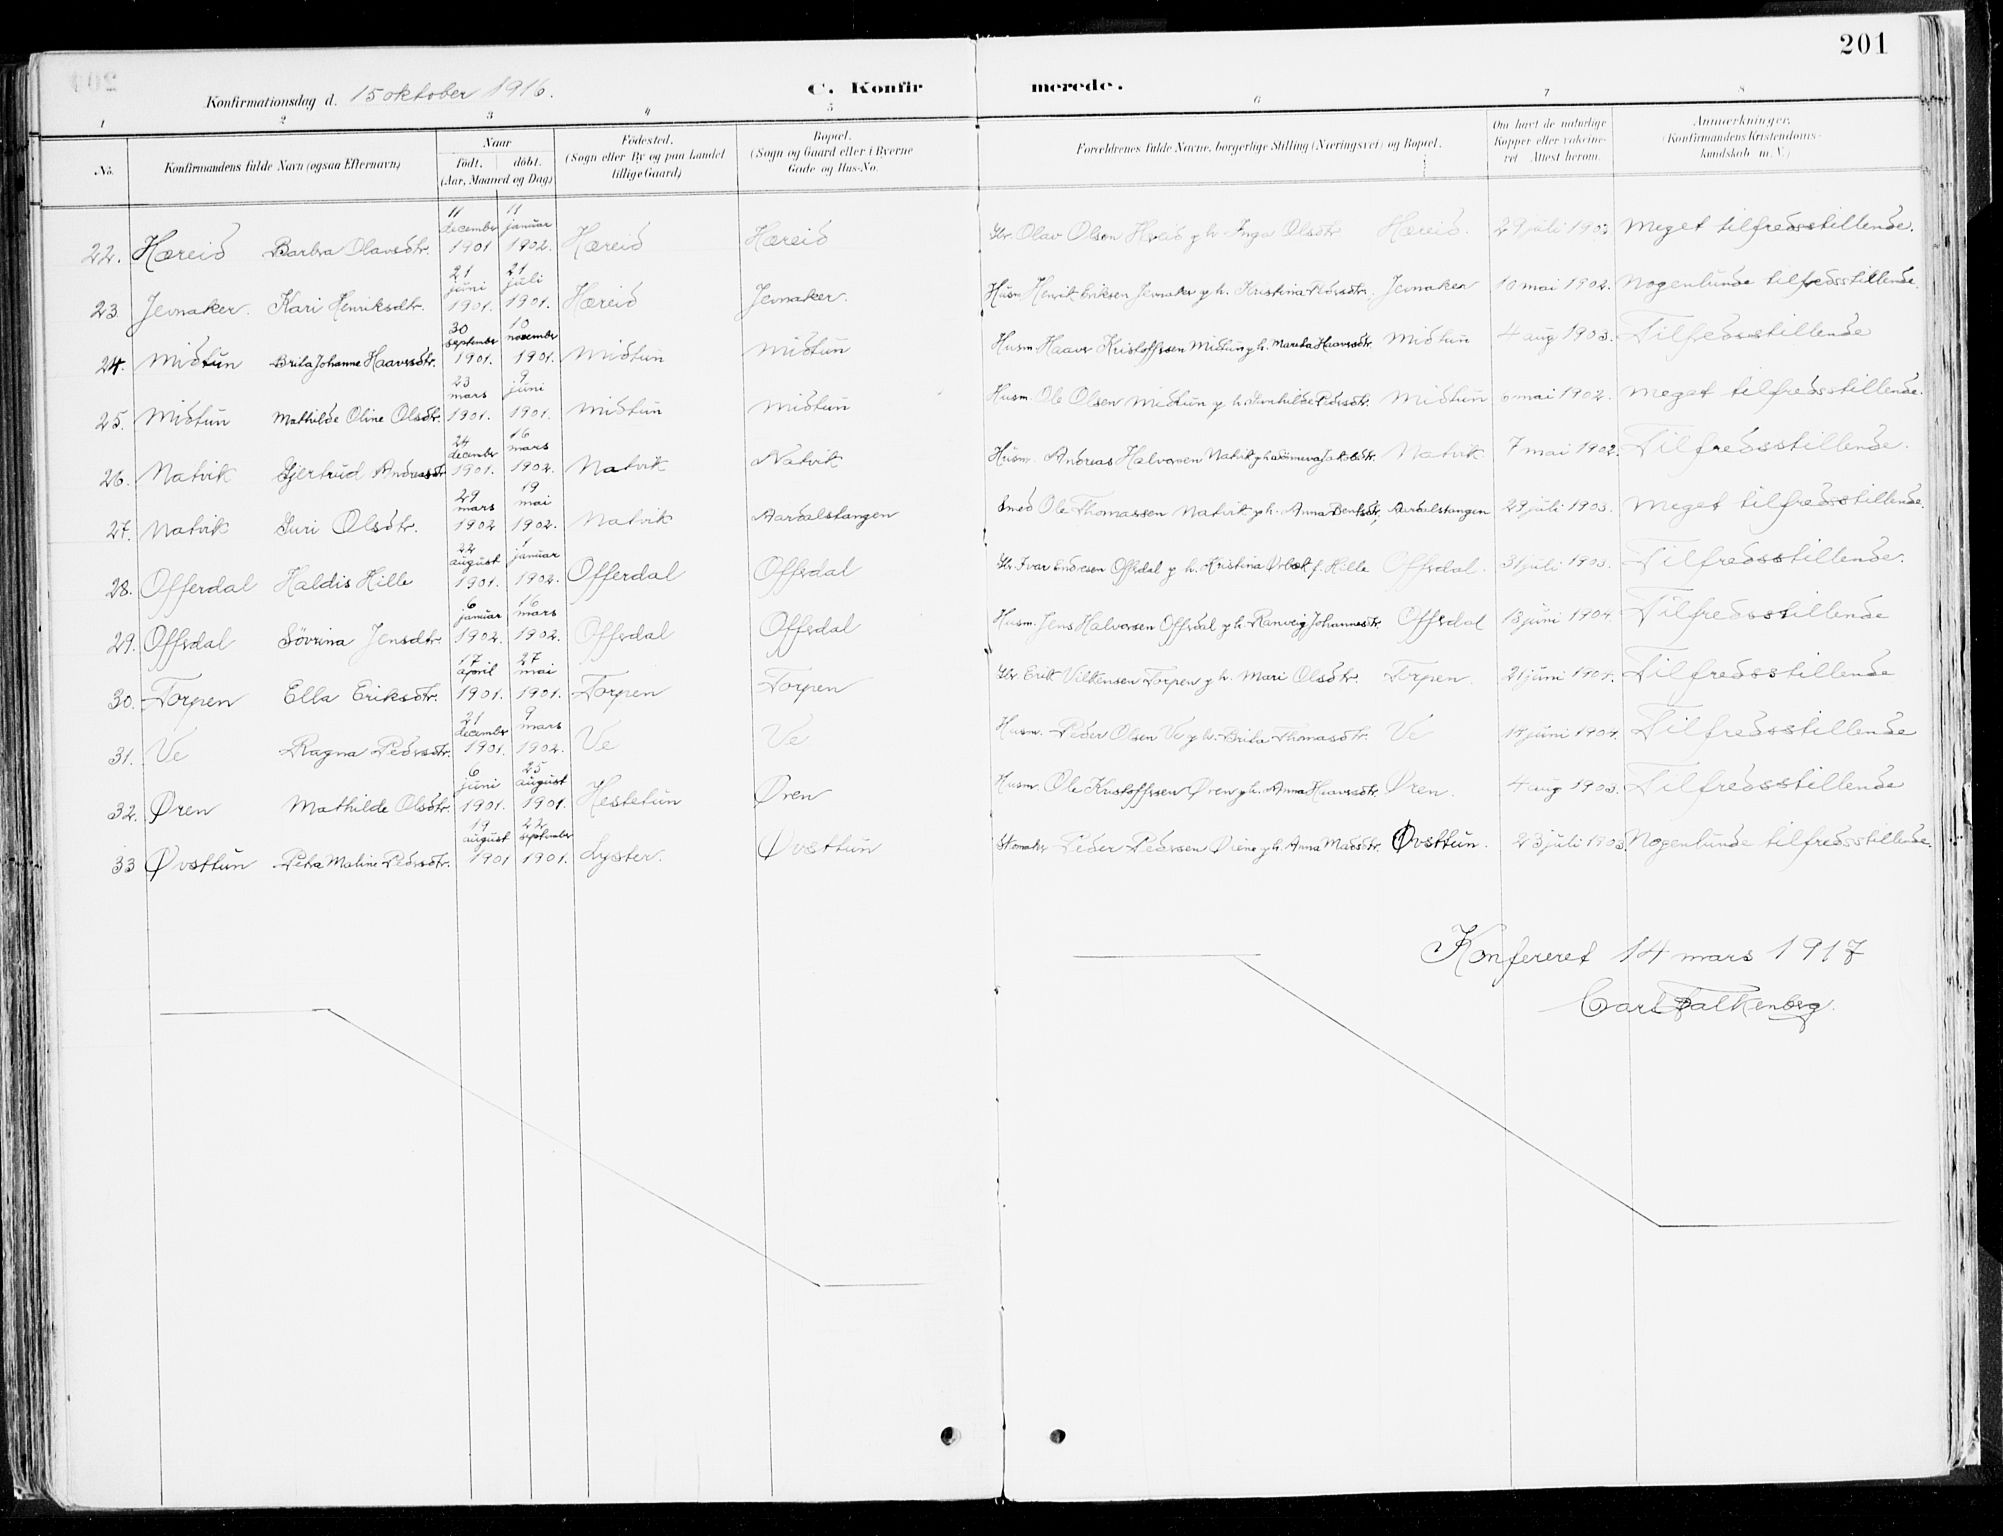 201
Konfirmationsdag d. 15 oktober 1916. C. Konfirmerede.
1 2 3 4 5 6 7 8
No. Konfirmandens fulde Navn (ogsaa Efternavn) Naar födt. döbt. (Aar, Maaned og Dag) Födested. (Sogn eller By og paa Landet tillige Gaard) Bopæl. (Sogn og Gaard eller i Byerne Gade og Hus-No. Forældrenes fulde Navne, borgerlige Stilling (Næringsvei) og Bopæl. Om havt de naturlige Kopper eller vakcineret Attest herom. Anmærkninger. (Konfirmandens Kristendomskundskab m. V.)
22. Hæreid Barbra Olavsdtr. 11 december 1901 11 januar 1902. Hæreid Hæreid Gbr. Olav Olsen Hæreid g h. Inga Olsdtr. Hæreid. 29 juli 1903 Meget tilfredsstillende.
23 Jevnaker. Kari Henriksdtr. 21 juni 1901. 21 juli 1901. Hæreid Jevnaker. Husm Henrik Eriksen Jevnaker g h. Kristina Pedersdtr. Jevnaker 10 mai 1902. Nogenlunde tilfredsstillende.
24. Midtun Brita Johanne Haavrsdtr. 30 september 1901. 10 november 1901. Midtun Midtun Husm. Haavr Kristoffersen Midtun g h. Mareta Haavrsdtr. Midtun 4 aug 1903. Tilfredsstillende
25. Midtun Mathilde Oline Olsdtr. 23 mars 1901. 9 juni 1901. Midtun Midtun Husm. Ole Olsen Midtun g h. Pedersdtr. Midtun 6 mai 1902. Meget tilfredsstillende.
26. Natvik Gjertrud Andreasdtr 24 december 1901. 16 mars 1902. Natvik Natvik Husm. Andreas Halvorsen Natvik g h Sönneva Jakobsdtr. Natvik 7 mai 1902. Tilfredsstillende.
27. Natvik Guri Olsdtr. 29 mars 1902 19 mai 1902. Natvik Aardalstangen Smed Ole Thomassen Natvik g h. Anna Bentsdtr. Aardalstangen 29 juli 1903. Meget tilfredsstillende.
28. Offerdal Haldis Hille 22 august 1901. 1 januar 1902. Offerdal Offerdal Gbr. Ivar Endresen Offerdal g h. Kristina f. Hille Offerdal. 31 juli 1903. Tilfredsstillende.
29. Offerdal Sövrina Jensdtr. 6 januar 1902. 16 mars 1902. Offerdal Offerdal Husm. Jens Halvorsen Offerdal g h. Ranveig Johannesdtr. Offerdal 13 juni 1904. Tilfredsstillende
30. Torpen Ella Eriksdtr. 17 april 1901. 27 mai 1901. Torpen Torpen Gbr. Erik Vilkensen Torpen g h. Mari Olsdtr. Torpen. 21 juni 1904. Tilfredsstillende
31. Ve Ragna Pedersdtr. 21 december 1901. 9 mars 1902. Ve Ve Husm. Peder Olsen Ve g h. Brita Thomasdtr. Ve 14 juni 1904. Tilfredsstillende
32. Øren Mathilde Olsdtr. 6 juni 1901. 25 august 1901. Hestetun Øren Husm. Ole Kristoffersen Øren g h. Anna Haavrsdtr. Øren. 4 aug 1903. Tilfredsstillende
33 Øvsttun Petra Maline Pedersdtr. 19 august 1901 22 september 1901. Lyster. Øvsttun Skomaker Peder Pedersen Øiene g h. Anna Madsdtr. Øvsttun. 23 juli 1903. Nogenlunde tilfredsstillende.
Konfereret 14 mars 1917
Carl Falkenberg.